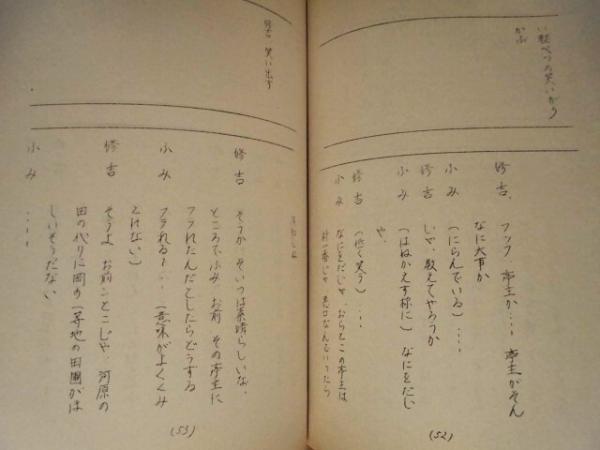 修吉、
フッフ 亭主か…。亭主がそん
なに大事か
ふみ
(にらんでいる)…。
修吉
じゃ、教えてやろうか
ふみ
(はねかえす様に) なにをだじ
ゃ。
修吉
(低く笑う)…。
ふみ
なにをだじゃ、おらとこの亭主は
(52)
修吉 笑い出す
修吉
そうか そいつは素晴らしいな、
ところでふみ お前 その亭主に
フラれたんだとしたらどうする
ふみ
フラれる!… (意味がよくくみ
とれない)
修吉
そうよ お前ンとこじゃ、河原の
田の代りに岡の一等地の田圃がほ
しいそうだない
ふみ
…。
(53)